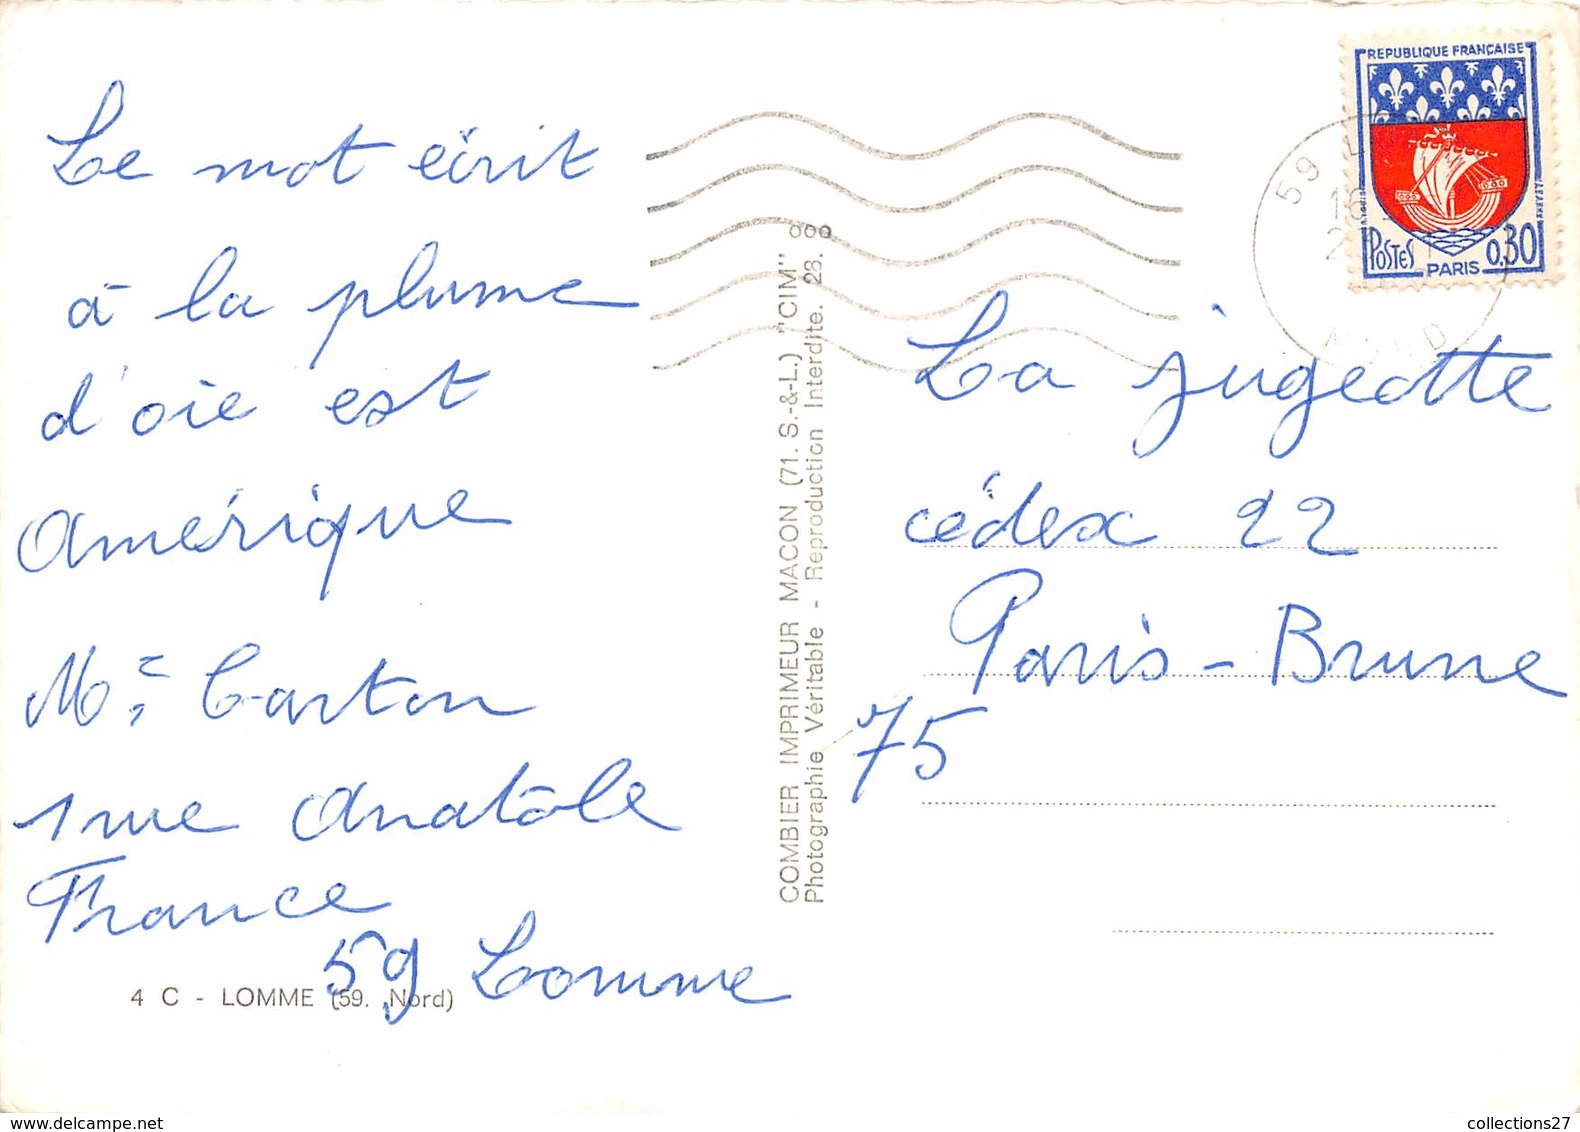 Le mot écrit
à la plume
d'oie est
Amérique
Mr Carton
1 rue Anatole
France
59 Lomme
4 C - LOMME (59. Nord)
COMBIER IMPRIMEUR MACON (71. S.-&-L.) "CIM"
Photographie Véritable - Reproduction Interdite. 28.
REPUBLIQUE FRANÇAISE
POSTES
PARIS
0,30
59
NORD
La jugeotte
cédex 22
Paris-Brune
75
collections27